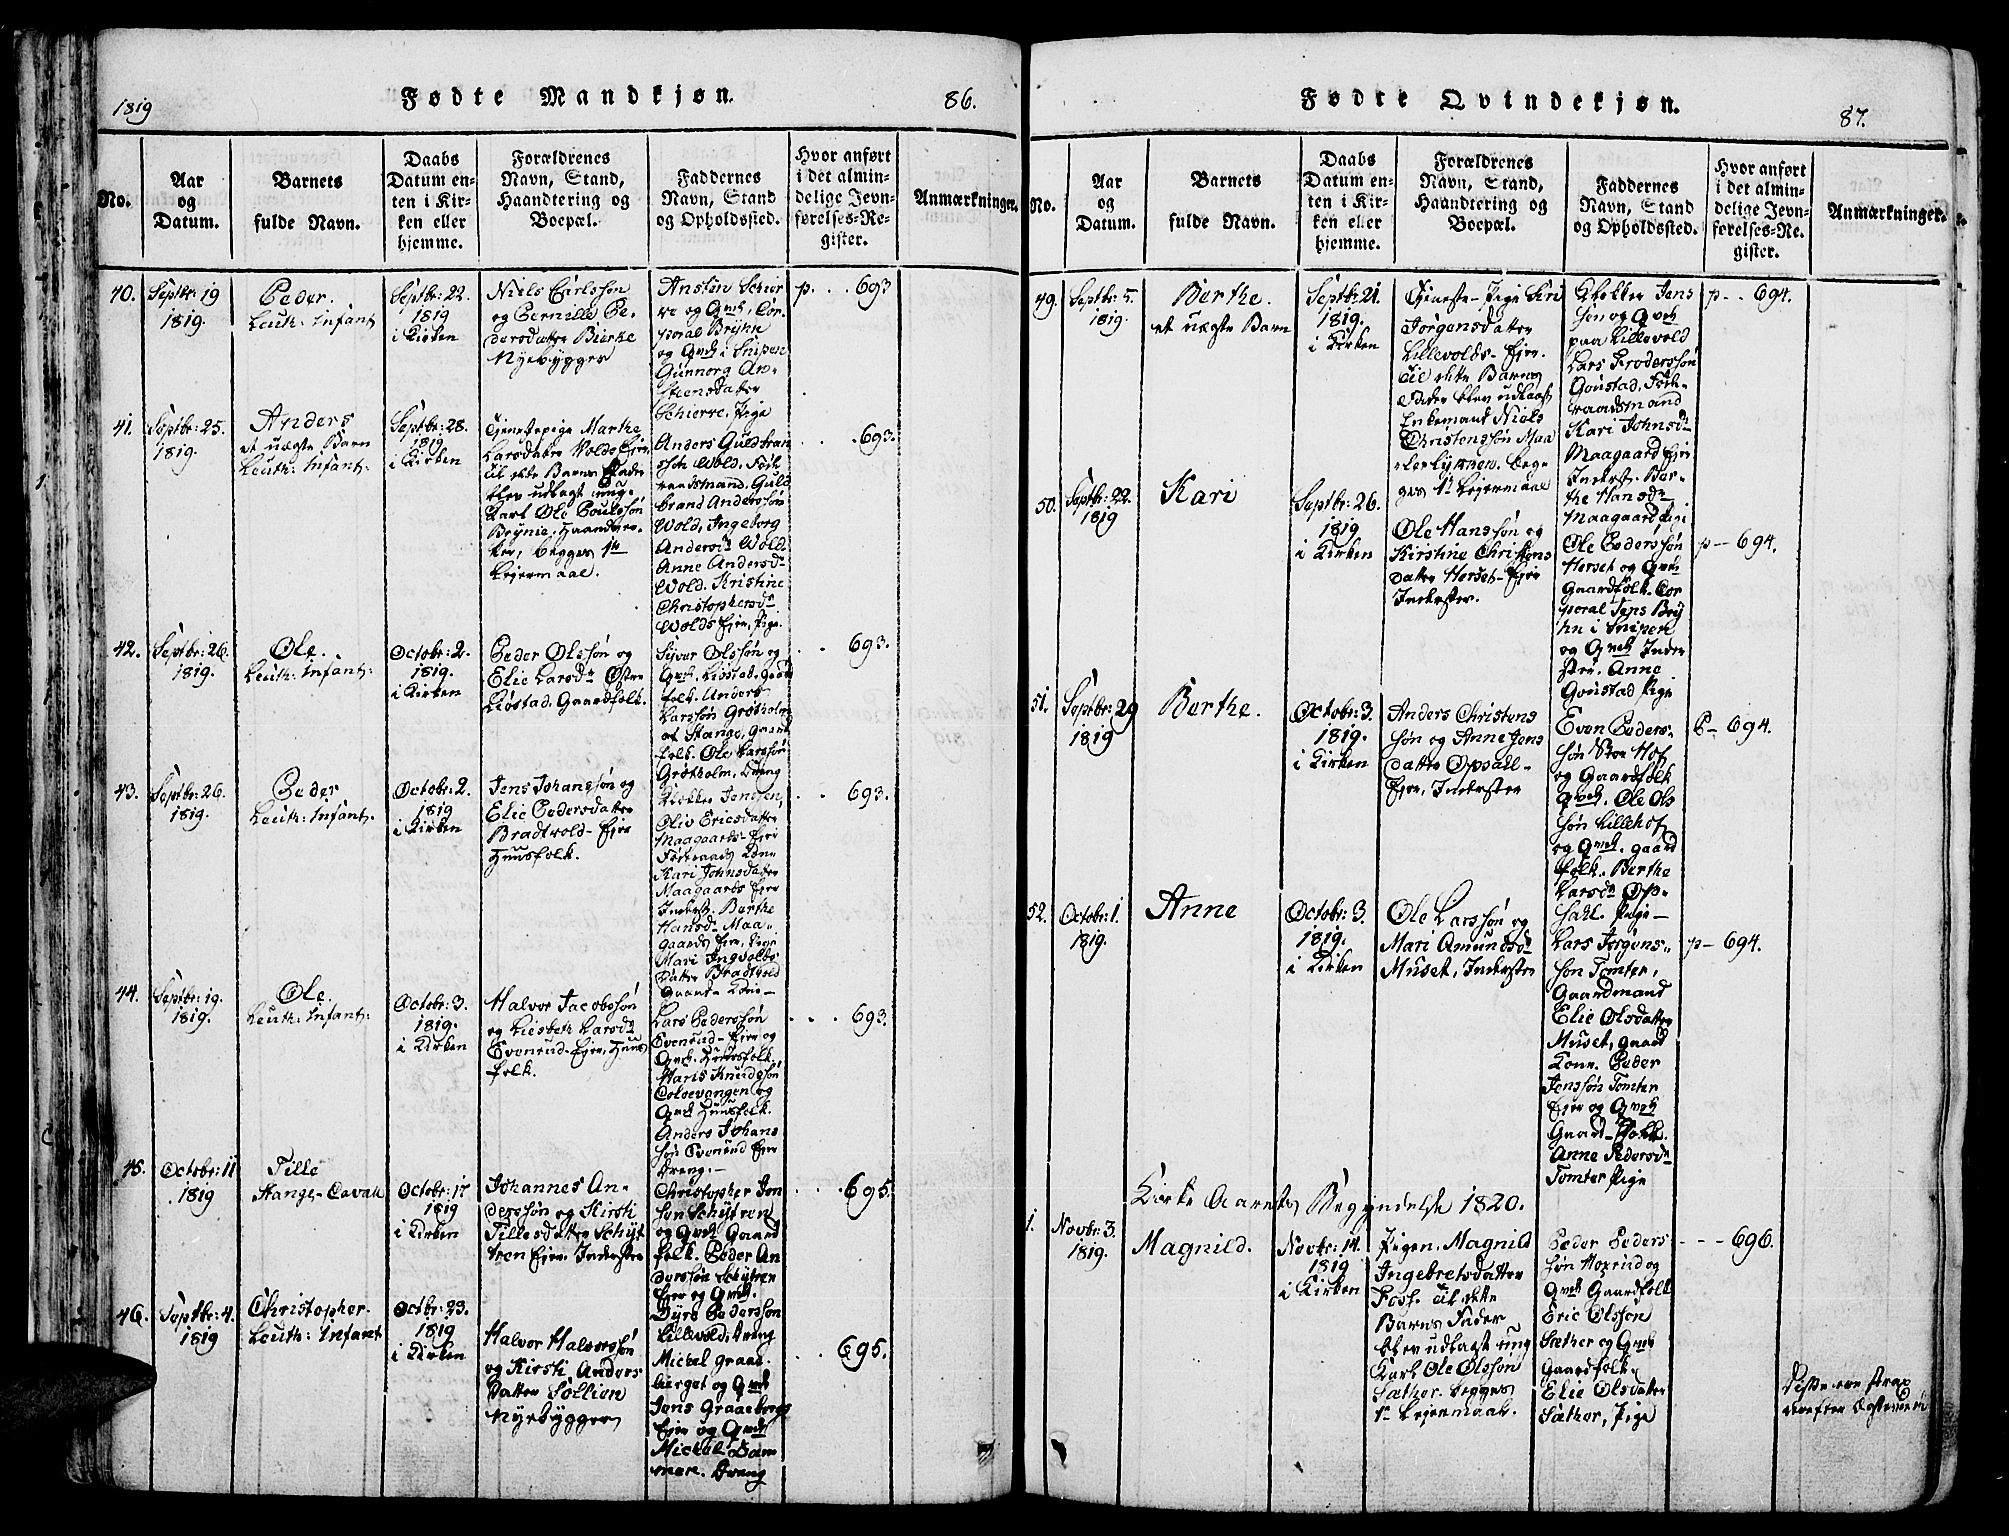 1819
Fødte Mandkjøn.
86.
No.
Aar
og
Datum.
Barnets
fulde Navn.
Daabs
Datum en-
ten i Kir-
ken eller
hjemme.
Forældrenes
Navn, Stand,
Haandtering og
Boepæl.
Faddernes
Navn, Stand
og Opholdssted.
Hvor anført
i det almin-
delige Jevn-
førelses-Re-
gister.
Anmærkninger.
40.
Septbr: 19
1819.
Peder.
Leuth: Infant
Septbr: 22.
1819
i Kirken
Niels
og Pernille Pe-
dersdatter Bierke
Nyebygger
og Qvek, Cor-
poral
og Qvek i Snipen
Gunnorg An-
steensdatter
Schierre, Pige
p. . . 693
41.
Septbr: 25.
1819.
Anders
et uægte Barn
Leuth: Infant:
Septbr: 28.
1819
i Kirken
Tjenestepige Marthe
Larsdatter Volds Eje,
til dette Barns Fader
blev udlagt ung-
karl Ole Poulssøn
Brynie,
ker, begges 1ste
Lejermaal.
Anders Guldbran
søn Wold, Fор-
raadsmand. Guld
brand Anderssøn
Wold, Ingeborg
Andersdr Wold
Anne Andersd-
Wold. Kristine
Christophersdr
Wolds Ejer, Pige.
. . . 693.
42.
Septbr: 26.
1819.
Ole.
Leuth: Infant:
Octobr: 2.
1819.
i Kirken
Peder Olssøn og
Elie Larsdr Østre
Liøstad. Gaardfolk.
Syver Olssøn og
Qvek, Liøstad, Gaard
folk. Anders
Larssøn Grøtholm
af Stange, Gaard
folk. Ole Larssøn
Grøtholm, Dreng
. . . 693.
43.
Septbr: 26.
1819.
Peder
Leuth: Infant.
Octobr: 2.
1819
i Kirken
Jens Johanssøn og
Elie Pedersdatter
Bradtvold-Ejer
Huusfolk.
Klokker Jenssen,
Oliv Ericsdatter
Maagaards-Ejer
Kari Johnsdatter
Maagaards Ejer
Inderst. Berthe
Hansdr Maa-
gaards Ejer, Pige
Mari Ingvolds-
datter Bradtvold
Gaard-Kone-
. . . 693.
44.
Septbr: 19.
1819.
Ole.
Leuth: Infant:
Octobr: 3.
1819.
i Kirken
Halvor Jacobssøn
og Liesbeth Larsdr
Evenrud-Ejer, Huus
folk.
Lars Pederssøn
Evenrud-Ejer og
Qvek. Huusfolk.
Hans Knudssøn
og
Qvek Huusfolk.
Anders Johans
søn Evenrud Ejer
Dreng.-
. . . 693.
45.
Octobr: 11
1819
Tille
Stange-Cavall
Octobr: 17
1819
i Kirken
Johannes An-
derssøn og Kirsti
Tillesdatter Schyt
tren Ejer, Inderster
Christopher Jon
søn Schytren
og Qvek Gaard
folk. Peder An
derssøn Schytren
Ejer og Qvek.
. . . 695.
46.
Septbr: 4.
1819
Christopher.
Leuth: Infant
Octbr: 23.
1819
i Kirken
Halvor Halvorssøn
og Kirsti Anders
datter Sollien
Nyebyggere
Dyre Pederssøn
Lillevold, Dreng
Michel Graae-
berget og Qvek
Jens Graaebergs
Ejer og Qvek
Michel
Dreng
. . . 695.
Fødte Qvindekjøn.
87.
No.
Aar
og
Datum.
Barnets
fulde Navn.
Daabs
Datum en-
ten i Kir-
ken eller
hjemme.
Forældrenes
Navn, Stand,
Haandtering og
Boepæl.
Faddernes
Navn, Stand
og Opholdssted.
Hvor anført
i det almin-
delige Jevn-
førelses-Re-
gister.
Anmærkninger.
49.
Septbr: 5.
1819.
Berthe.
et uægte Barn
Septbr: 21.
1819.
i Kirken
Tjeneste-Pige Kri
Jørgensdatter
Lillevolds-Ejer.
Til dette Barns
Fader blev udlagt
Enkemand Niels
Christenssøn Maa
begges
1ste Lejermaal
Klokker Jens
søn og Qvek
paa Lillevold
Lars Froderssøn
Gonstad, For-
raadsmand
Kari Johnsdr
Maagaard Ejer
Inderst. Ber-
the Hansdr
Maagaard Pige
p. . 694.
50.
Septbr: 22.
1819
Kari
Septbr: 26.
1819
i Kirken
Ole Hanssøn og
Kirstine Christens
datter Horset-Ejer
Inderster.
Ole Pederssøn
Horset og Qvek
Gaardfolk. Cor
poral Jens Bry
hn i Snipen
og Qvek Inder
ster. Anne
Gonstad Pige
p - 694.
51.
Septbr: 29
1819
Berthe.
Octobr: 3.
1819.
i Kirken
Anders Christens
søn og Anne Jens
datter Opsall-
Ejer, Inderster
Even Peders-
søn Stor Hof
og Gaardfolk
Qvek. Ole Ols
søn Lillehof
og Qvek. gaard
folk. Berthe
Larsdr Op-
sahl. Pige-
P - 694.
52.
Octobr: 1.
1819.
Anne
Octobr: 3.
1819.
i Kirken
Ole Larssøn og
Mari Amundsdr
Muset, Inderster
Lars Jørgens-
søn Tomter,
Gaardmand
Elie Olsdatter
Muset, Gaard
Kone. Peder
Jenssøn Tomter
Ejer og Qvek
Gaard-Folk.
Anne Pedersdr
Tomter Pige
p - 694.
Kirke Aarets Begyndelse 1820.
1.
Novbr: 3.
1819.
Magnild.
Novbr: 14.
1819
i Kirken
Pigen Magnild
Ingebretsdatter
Poss. til dette
Barns Fader
blev udlagt ung
Karl Ole Olssøn
Sæther. begges
1ste Lejermaal.
Peder Peders
søn Moxrud og
Qvek Gaardfolk
Eric Olssen
Sæther og Qvek
Gaardfolk.
Elie Olsdatter
Sæther, Pige
- - - 696.
Disse ere strax
derefter